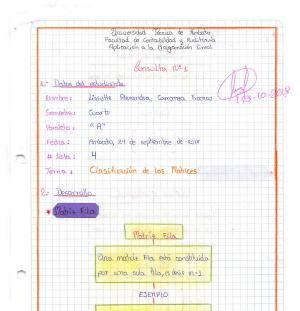 Universidad Técnica de Ambato
Facultad de Contabilidad y Auditoría
Aplicación a la Programación Lineal
Consulta Nº 1
1.- Datos del estudiante
Nombre: Lissette Alexandra
Semestre: Cuarto
Paralelo: "A"
Fecha: Ambato, 24 de septiembre de 2018
# Lista: 4
Tema: Clasificación de las Matrices
2.- Desarrollo
* Matriz Fila
Matriz Fila
Una matriz fila está constituida
por una sola fila, es decir m=1.
EJEMPLO